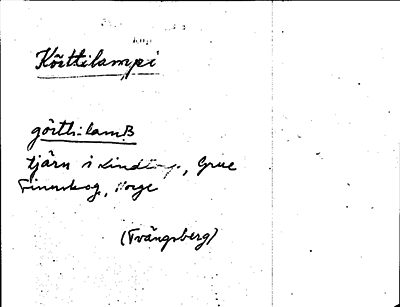 Köttilampi
göttilamB
tjärn i Lindberg, Grue
Finnskog, Norge
(Tvängsberg)